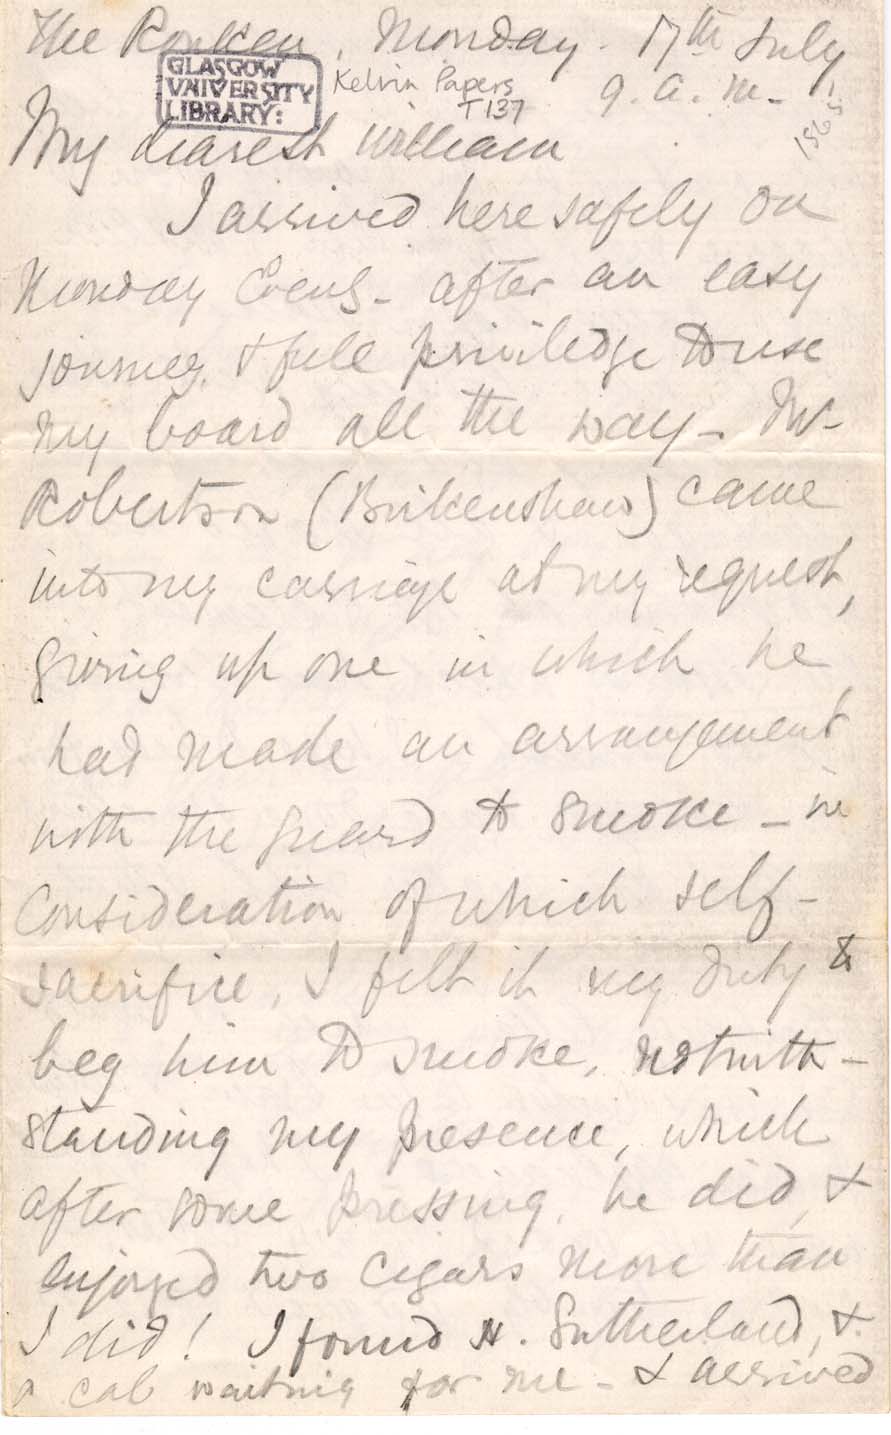 The Rouken, Monday. 17th July
GLASGOW
UNIVERSITY
LIBRARY:
Kelvin Papers
T 137
9. a. m. -
1865
My dearest William
I arrived here safely on
Monday Eveng - after an easy
journey, & full priviledge to use
my board all the way - Mr
Robertson (Birkenshaw) came
into my carriage at my request,
giving up one in which he
had made an arrangement
with the guard to smoke - in
consideration of which self-
sacrifice, I felt it my duty to
beg him to smoke, notwith-
standing my presence, which
after some pressing, he did, &
enjoyed two cigars more than
I did! I found H. Sutherland, &
a cab waiting for me - & arrived